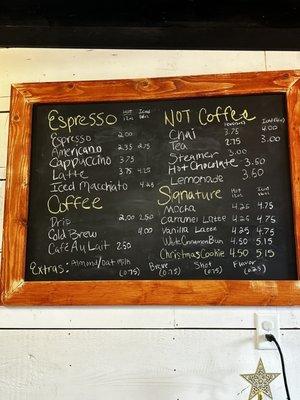 Espresso Hot 12oz Iced 16oz
Espresso 2.00
Americano 2.35 2.75
Cappuccino 3.75
Latte 3.75 4.25
Iced Macchiato 4.25
Coffee
Drip 2.00 2.50
Cold Brew 4.00
Café Au Lait 2.50
NOT Coffee Iced
Chai 3.75 4.00
Tea 2.75 3.00
Steamer 3.00
Hot Chocolate 3.50
Lemonade 3.50
Signature Hot 12oz Iced 16oz
Mocha 4.25 4.75
Caramel Latte 4.25 4.75
Vanilla Latte 4.25 4.75
White Cinnamon Bun 4.50 5.15
Christmas Cookie 4.50 5.15
Extras: Almond/Oat Milk (0.75) Breve (0.75) Shot (0.75) Flavor (0.75)